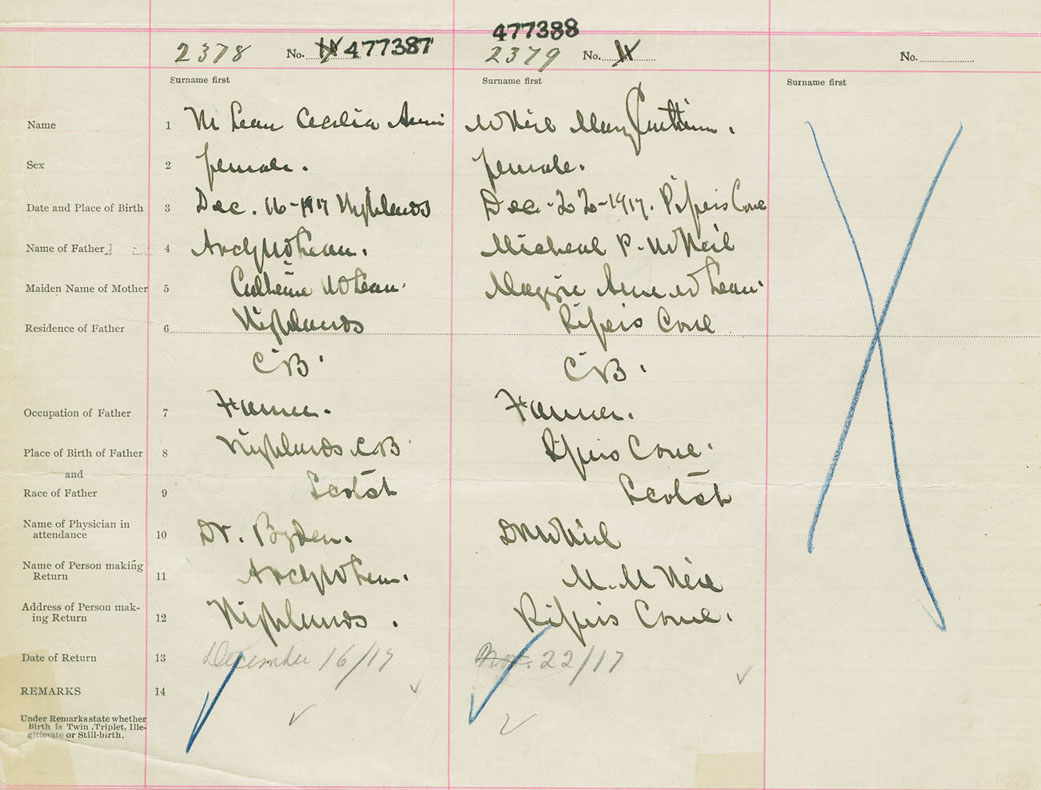 477388
2378 No. 477387 2379 No. No.
Surname first Surname first Surname first
Name 1 McLean Cecelia Annie McNeil Mary
Sex 2 female. female.
Date and Place of Birth 3 Dec. 16-1917 Highlands Dec-22-1917. Pipers Cove
Name of Father 4 Archy McLean. Micheal P. McNeil
Maiden Name of Mother 5 Catherine McLean. Maggie Anne McLean
Residence of Father 6 Highlands Pipers Cove
C B. C B.
Occupation of Father 7 Farmer. Farmer.
Place of Birth of Father 8 Highlands C.B Pipers Cove.
and
Race of Father 9 Scotch Scotch
Name of Physician in
attendance 10 Dr. McNeil
Name of Person making
Return 11 Archy McLean. M. McNeil
Address of Person mak-
ing Return 12 Highlands. Pipers Cove.
Date of Return 13 December 16/17 22/17
REMARKS 14
Under Remarks state whether
Birth is Twin, Triplet, Ille-
gitimate or Still-birth.